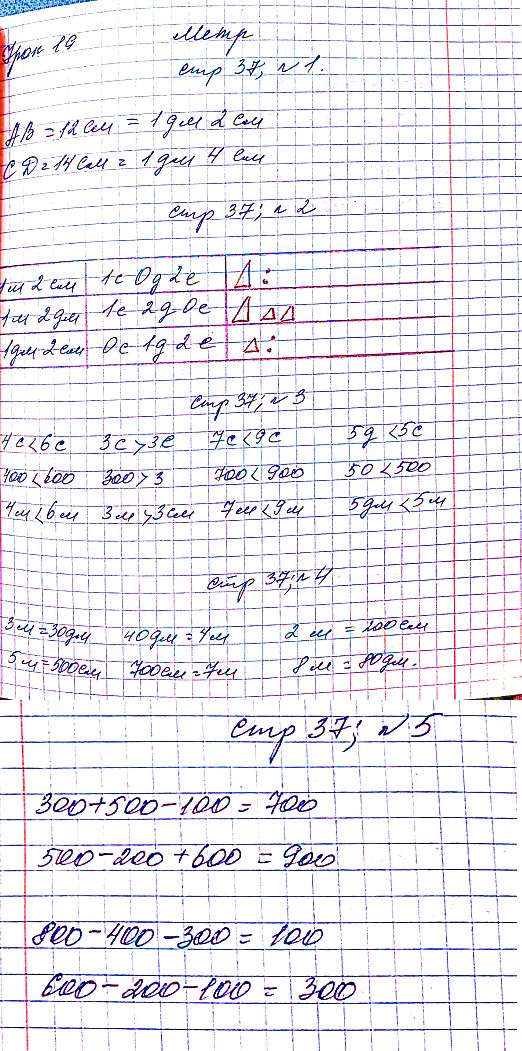 Урок 19 Метр
стр 37; №1.
AB = 12 см = 1 дм 2 см
CD = 14 см = 1 дм 4 см
стр 37; №2
1м 2 см 1с 0д 2е
1м 2дм 1с 2д 0е
1дм 2см 0с 1д 2е
стр 37; №3
4с < 6с 3с > 3е 7с < 9с 5д < 5с
400 < 600 300 > 3 700 < 900 50 < 500
4м < 6м 3м > 3см 7м < 9м 5дм < 5м
стр 37; №4
3м = 30дм 40дм = 4м 2 м = 200см
5м = 500см 700см = 7м 8м = 80дм.
стр 37; №5
300+500-100 = 700
500-200+600 = 900
800-400-300 = 100
600-200-100 = 300